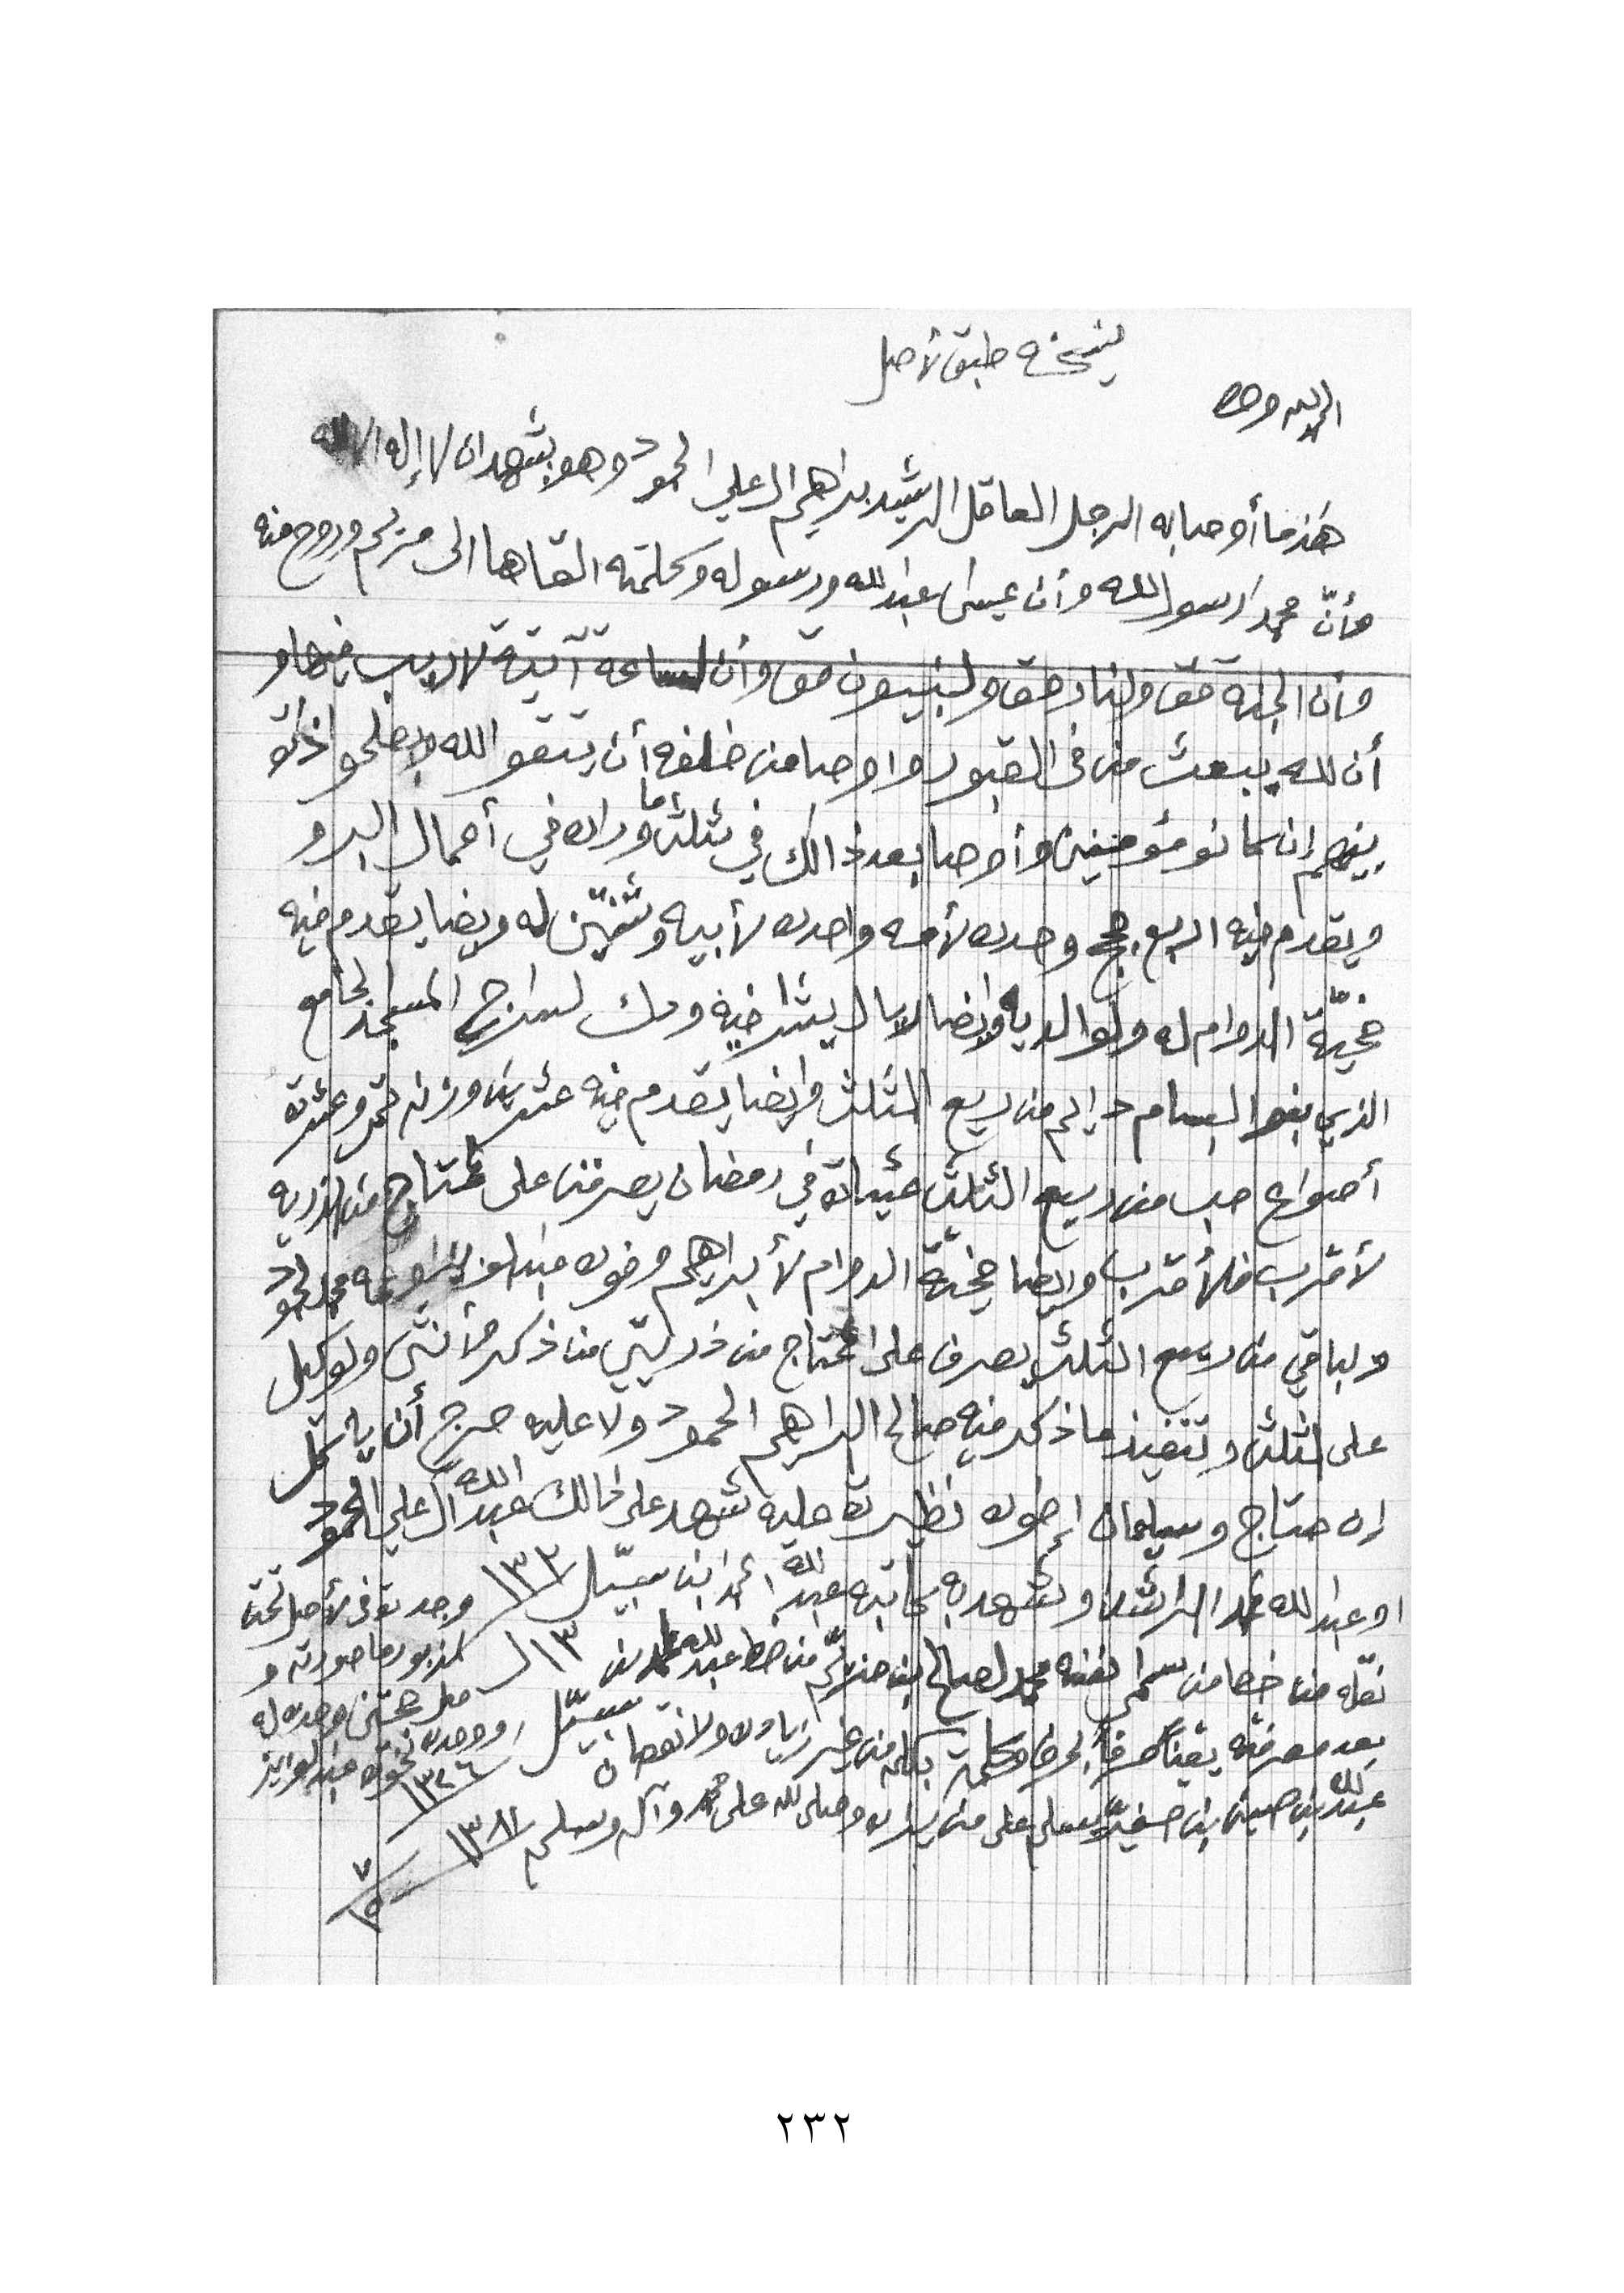 نسخه طبق لأصل
الحمد لله وحده
هذ ما أوصا به الرجل العاقل الرشيد براهيم ال علي الحمود وهو يشهد ان لا إله الا الله
وأنّ محمد رسول الله وأن عيسى عبد الله ورسوله وكلمته القاها الى مريم وروح منه
وأن الجنة حق ولنار حق ولنبييون حق وأن لساعة آتية لا ريب فيها و
أن لله يبعث من في القبور واوصا من خلفه أن يتقو الله ويصلحو اذات
بينهم إن كانو مؤمنين وأوصا بعد ذالك في ثلث ما وراه في أعمال البر و
ويقدم فيه اربع حجج وحده لأمه واحده لأبيه وثنتين له ويضا يقدم فيه
ضحيّة الدوام له ولوالديه وايضا لا يشرا فيه ودك لسراج المسجد الجامع
الذي بفم البسام دايم من ريع الثلث وايضا يقدم فيه عشرين وزنه تمر وعشرة
أصواع حب من ريع الثلث عشاة في رمضان يصرفن على المحتاج من لذريه
لأقرب فلأقرب وايضا ضحيّة الدوام لأبراهيم وخوه عبد لعزيز وعمه محمد الحمود
ولباقي من ريع الثلث يصرف على المحتاج من ذريتي من ذكر وأنثى ولوكيل
على لثلث وتنفيذ ما ذكر فيه صالح البراهيم الحمود ولا عليه حرج أن ياكل
إن حتاج وسيلمان إخوه نظيرة عليه شهد على ذالك عبد الله ال علي الحمود
او عبد الله محمد الراشد وشهد به كاتبه عبد الله احمد ابن سبيّل ١٣٢
نقله من خط من سمى نفسه محمد لصالح بن من خط عبد لله لحمد بن سبيّل ١٣
بعد معرفته يقيناً حرفاً بحرف وكلمة بكلمه من غير زياده ولا نقصان
عبد لله بن حسين بن يسلم على من يراه وصلى لله على محمد وآله وسلم ١٣٨٧
٧
١٥
وجد توفى لأصل تحت
المزبور ما صورته و
حجتين وحده له
ووحده لخوه عبد لعزيز
١٣٢٦
٢٣٢